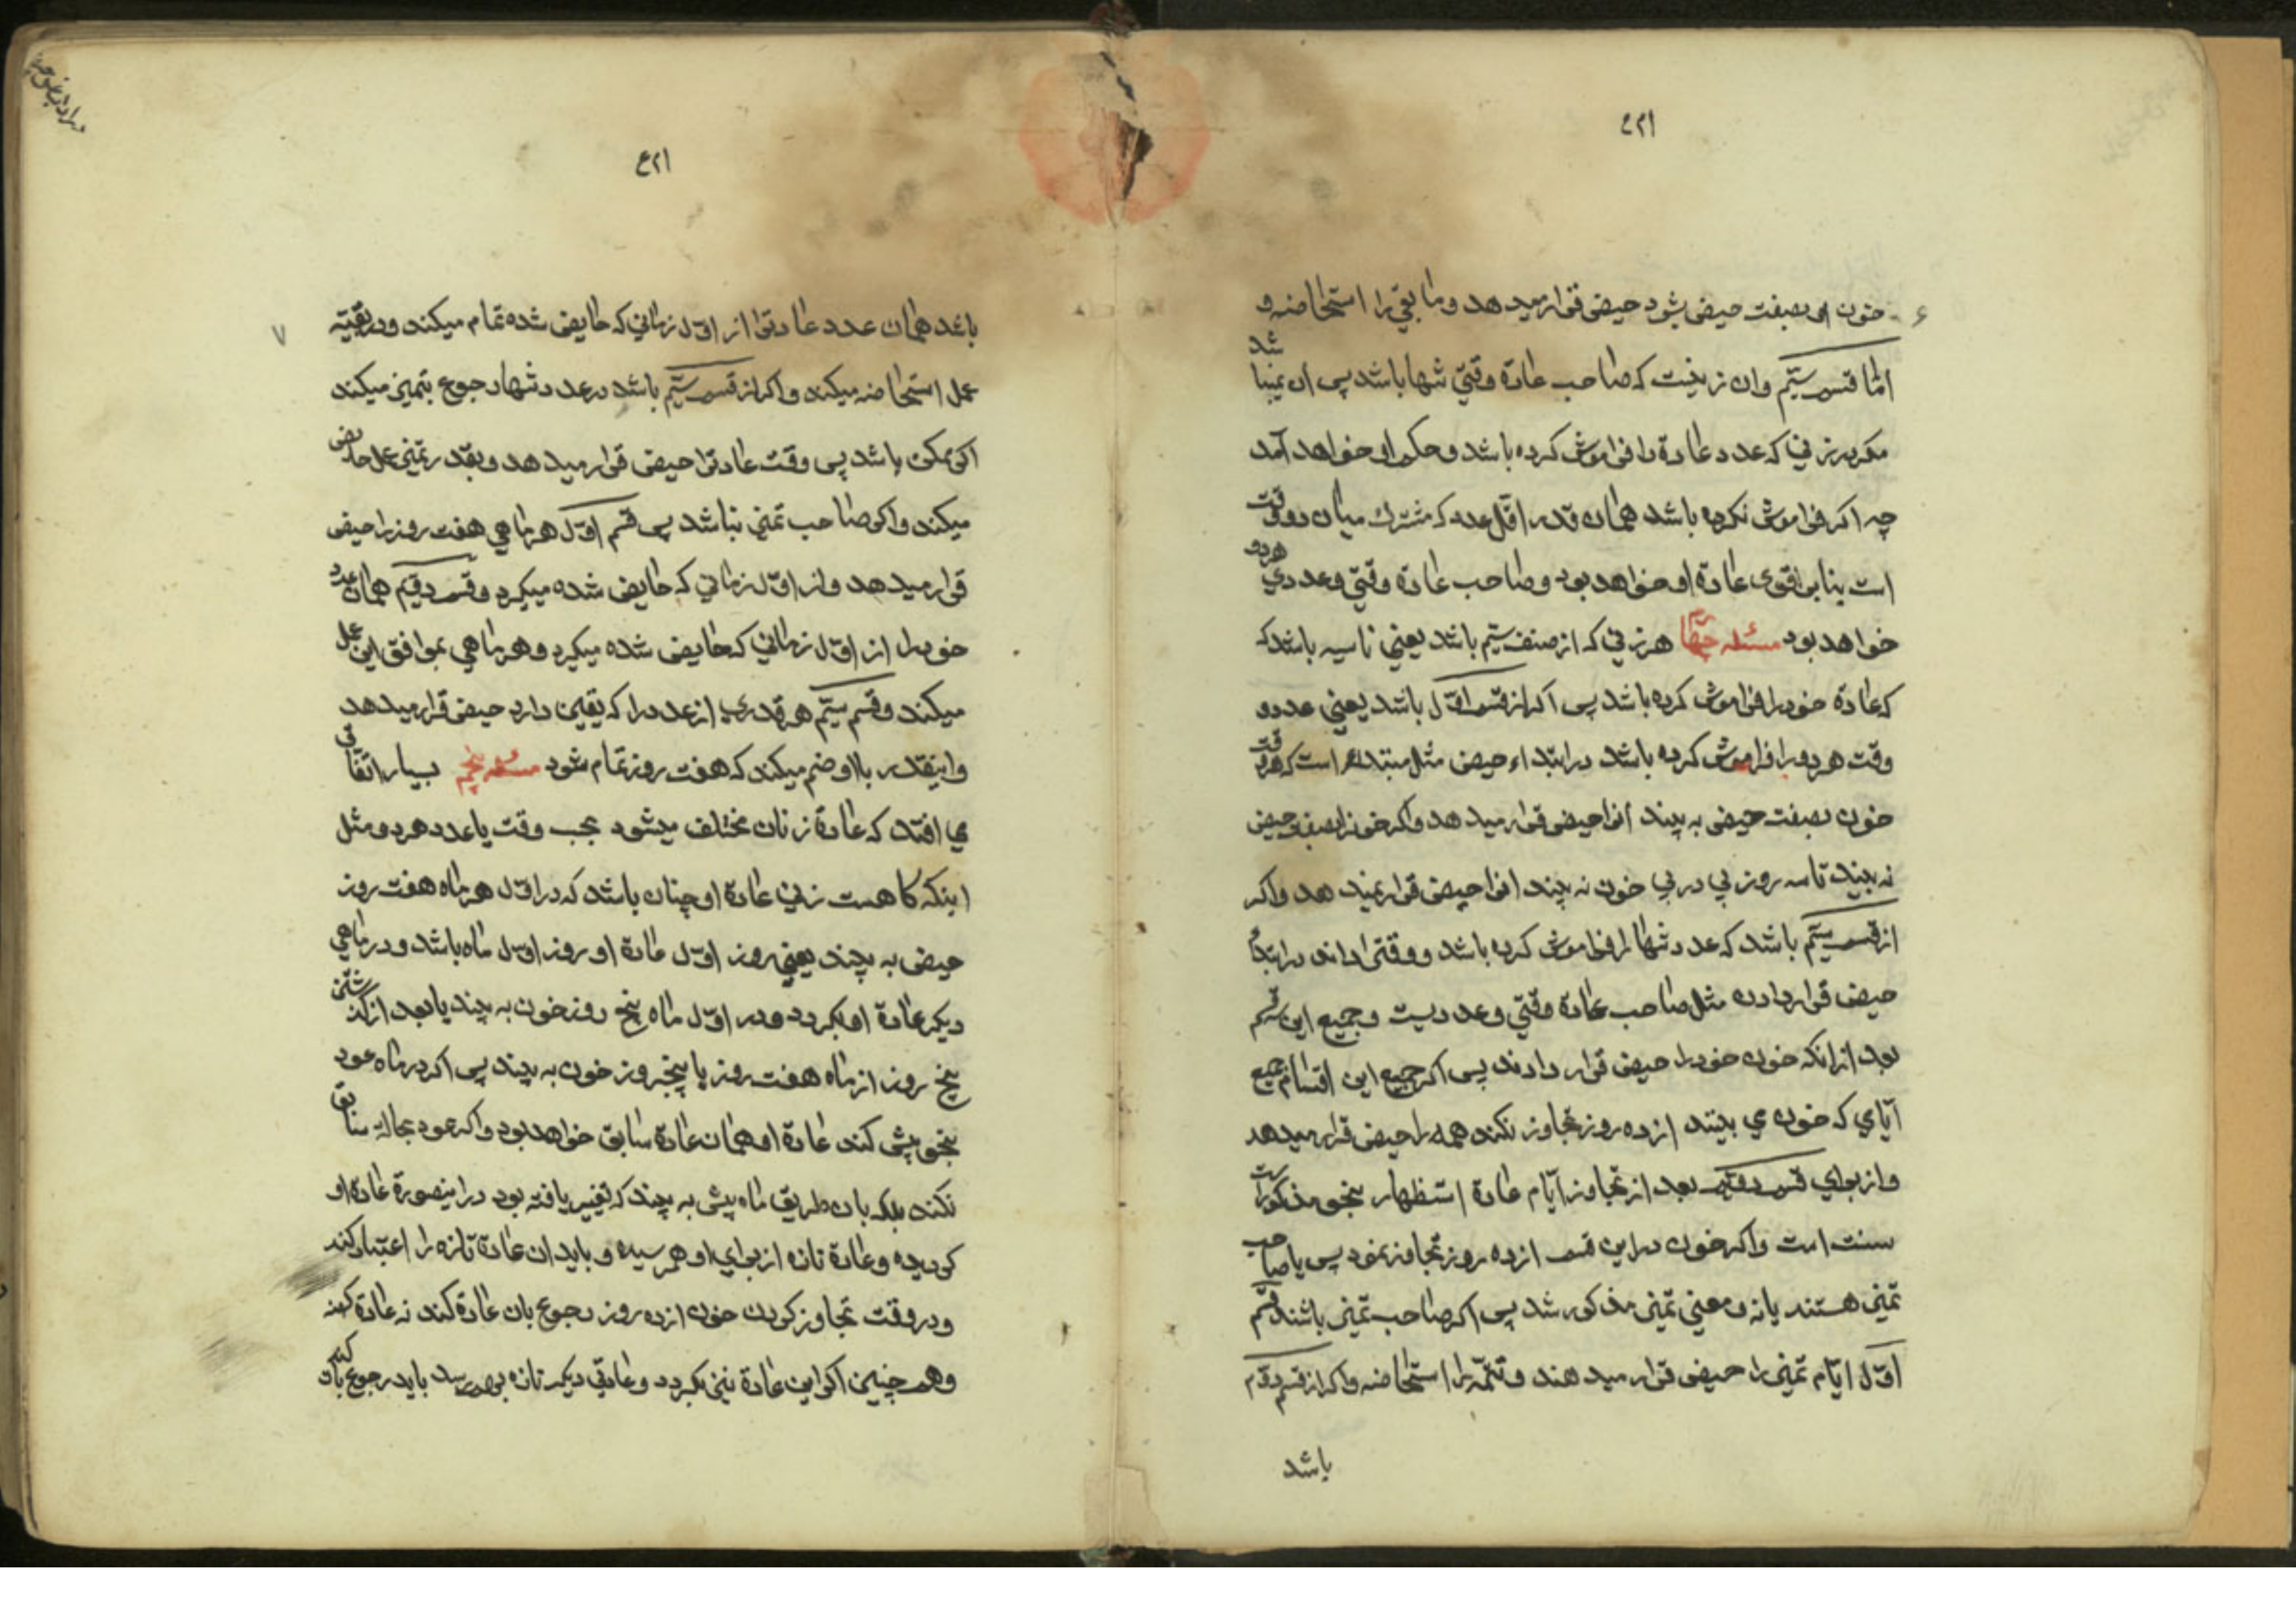 خون او بصفت حیض بشود حیض قرار میدهد و مابقی را استحاضه و
اما قسم سیّم وان زنیست که صاحب عادة وقتی تنها باشد پس ان نمیباشد
مکر هر زنی که عدد عادة را فراموش کرده باشد و حکم او خواهد آمد
چه اکر فراموش نکرده باشد همان قدر اقل عدد که مشترك میان دو وقت
است بنابر اقوی عادة او خواهد بود و صاحب عادة وقتی و عددی هردو
خواهد بود مسئله چهارم هر زنی که از صنف سیّم باشد یعنی ناسیه باشد که
که عادة خود را فراموش کرده باشد پس اکر از قسم اوّل باشد یعنی عدد و
وقت هر دو را فراموش کرده باشد در ابتداء حیض مثل مبتدئه است که هر وقت
خون بصفت حیض به بیند انرا حیض قرار میدهد واکر خونرا بصفت حیض
نه بیند تا سه روز پی در پی خون نه بیند انرا حیض قرار نمیدهد واکر
از قسم سیّم باشد که عدد تنها را فراموش کرده باشد و وقترا داند در ابتداء
حیض قرار دادن مثل صاحب عادة وقتی و عددیست و جمیع این سه قسم
بعد از انکه خون خود را حیض قرار دادند پس اکر جمیع این اقسام جمیع
ایّامی که خون می بینند از ده روز تجاوز نکند همه را حیض قرار میدهد
و از برای قسم دویّم بعد از تجاوز ایّام عادة استظهار بنحو مذکورات
سنت است واکر خون در این قسم از ده روز تجاوز نمود پس یا صاحب
تمیز هستند یا نه و معنی تمیز مذکور شد پس اکر صاحب تمیز باشند قسم
اوّل ایّام تمیز را حیض قرار میدهند و تتمّه را استحاضه واکر از قسم دوّم
باشد
باشد همان عدد عادترا از اوّل زمانی که حایض شده تمام میکند و در بقیّه
عمل استحاضه میکند واکر از قسم سیّم باشد در عدد تنها رجوع بتمیز میکند
اکر ممکن باشد پس وقت عادترا حیض قرار میدهد و بقدر تمیز عمل حایض
میکند واکر صاحب تمیز نباشد پس قسم اوّل هر ماهی هفت روز را حیض
قرار میدهد و از اوّل زمانی که حایض شده میکیرد و قسم دویّم همان عدد
خود را از اوّل زمانی که حایض شده میکیرد و هر ماهی بموافق این عمل
میکند و قسم سیّم هر قدری از عدد را که یقین دارد حیض قرار میدهد
و اینقدر بااو ضم میکند که هفت روز تمام شود مسئله پنجم بسیار اتفاق
می افتد که عادة زنان مختلف میشود بحسب وقت یا عدد هر دو مثل
اینکه کاهست زنی عادة او چنان باشد که در اوّل هر ماه هفت روز
حیض به بیند یعنی روز اوّل عادة او روز اوّل ماه باشد و در ماهی
دیکر عادة او بکردد و در اوّل ماه پنج روز خون به بیند یا بعد از کذشتن
پنج روز از ماه هفت روز یا پنجروز خون به بیند پس اکر در ماه عود
بنحو پیش کند عادة او همان عادة سابق خواهد بود واکر عود بحالة سابق
نکند بلکه بان طریق ماه پیش به بیند که تغییر یافته بود در اینصورة عادة او
کردیده و عادة تازه از برای او بهم رسیده و باید ان عادة تازه را اعتبار کند
و در وقت تجاوز کردن خون از ده روز رجوع بان عادة کند نه عادة کهنه
و همچنین اکر این عادة نیز بکردد و عادتی دیکر تازه بهم رسد باید رجوع بان کند